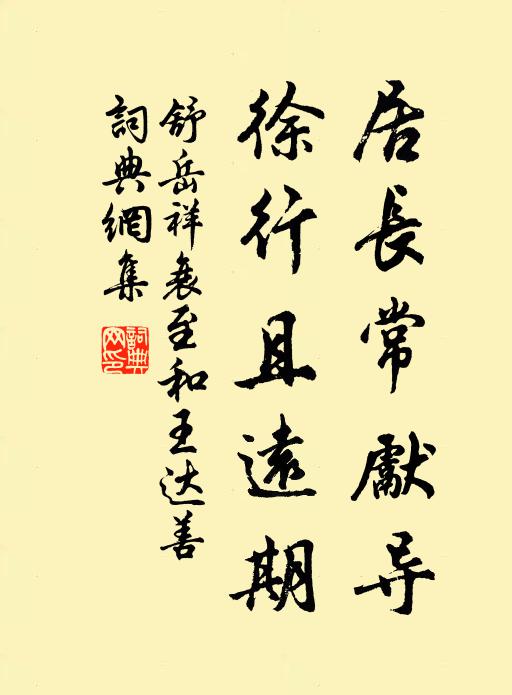 居長常獻导
徐行且遠期
舒岳祥衰至和王达善
詞典網集
詞典网印